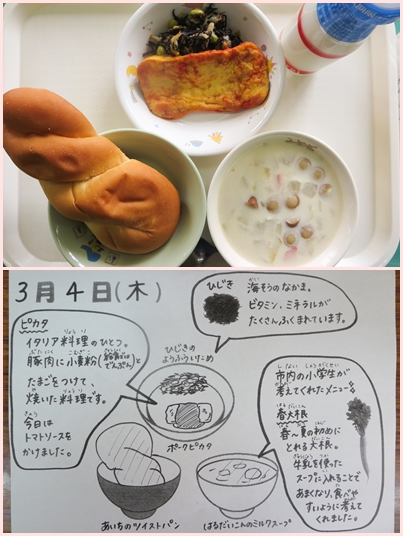 3月4日(木)
ピカタ
イタリア料理のひとつ。
豚肉に小麦粉(給食ではでんぷん)と
たまごをつけて、
焼いた料理です。
今日は
トマトソースを
かけました。
ひじき
海そうのなかま。
ビタミン、ミネラルが
たくさんふくまれています。
ひじきの
ようふういため
ポークピカタ
市内の小学生が
考えてくれたメニュー
春大根
春~夏の初めに
とれる大根。
牛乳を使った
スープに入れることで
あまくなり、食べや
すいように考えて
くれました。
あいちのツイストパン
はるだいこんのミルクスープ